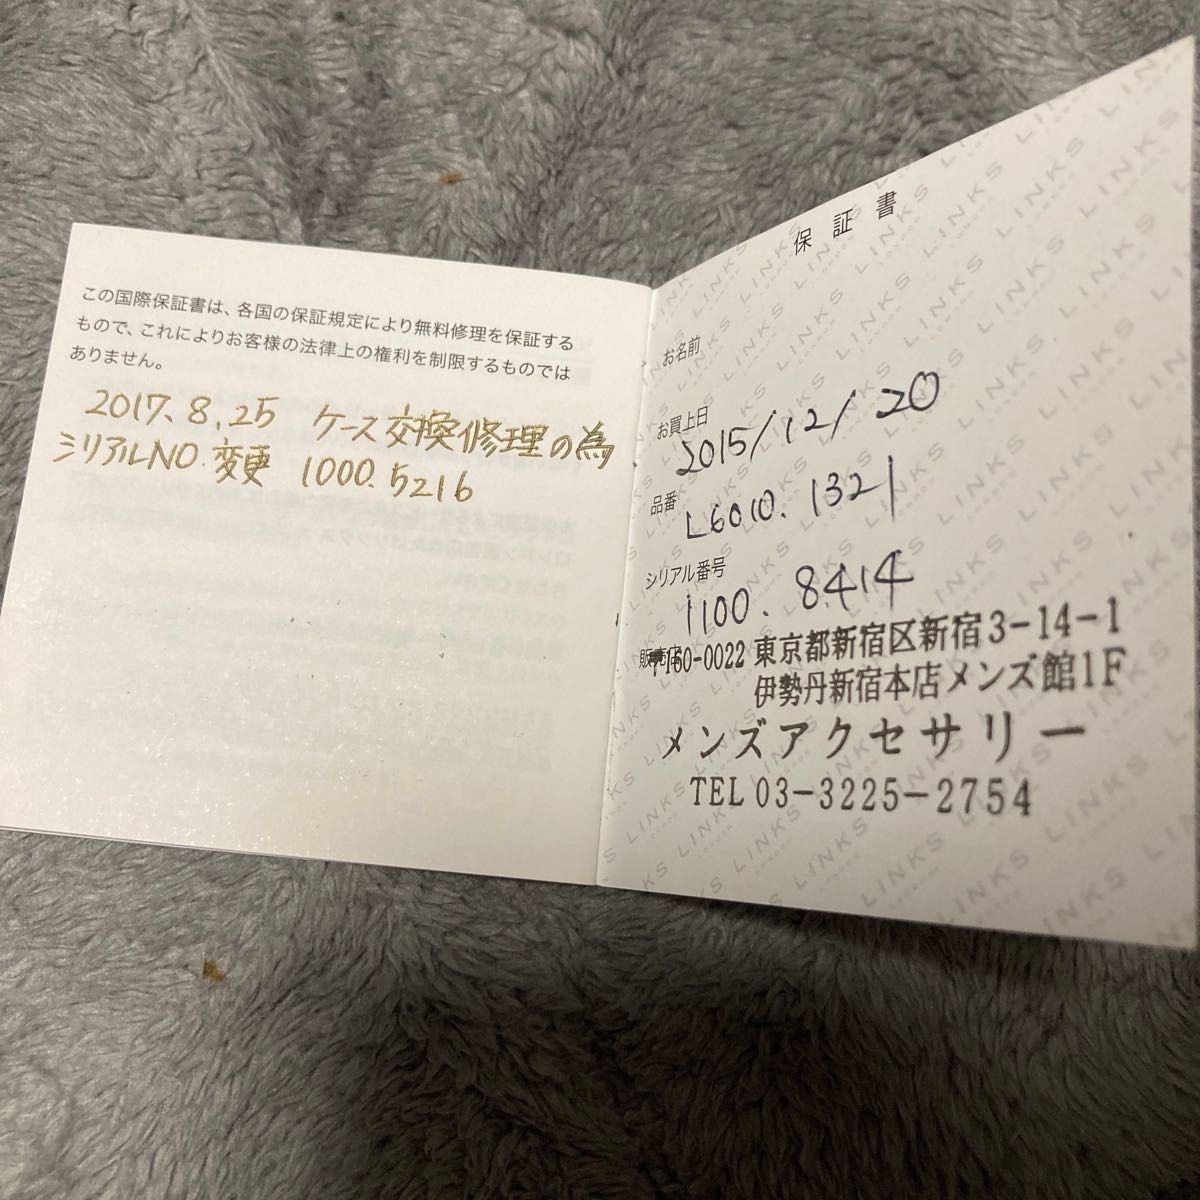 この国際保証書は、各国の保証規定により無料修理を保証する
もので、これによりお客様の法律上の権利を制限するものでは
ありません。
2017.8.25 ケース交換修理の為
シリアルNO.変更 1000.5216
保証書
お名前
お買上日
2015/12/20
品番
L6010.1321
シリアル番号
1100.8414
販売店
〒160-0022 東京都新宿区新宿3-14-1
伊勢丹新宿本店メンズ館1F
メンズアクセサリー
TEL 03-3225-2754
LINKS
LONDON